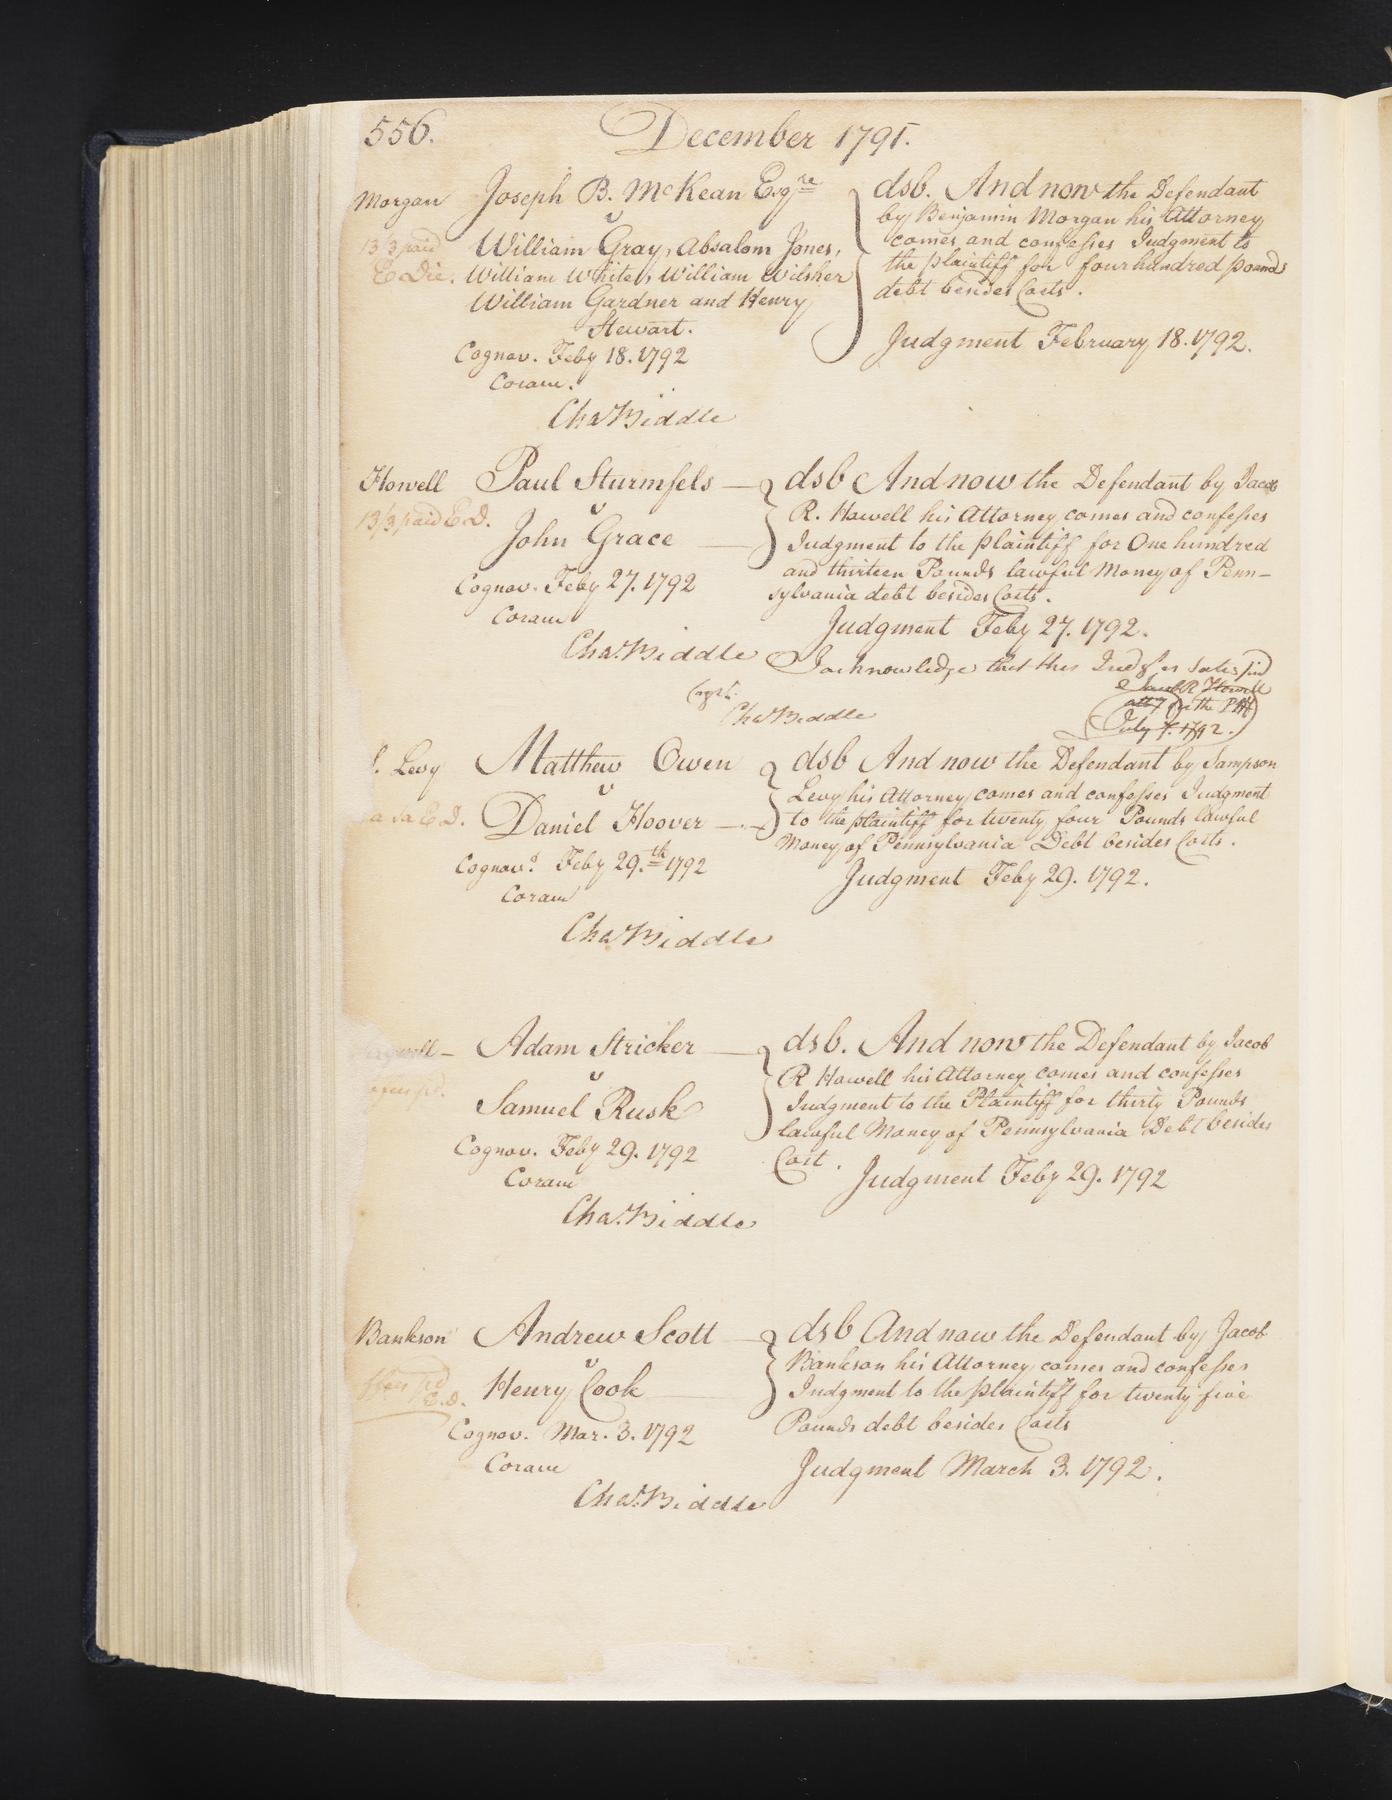 556.
December 1791.
Morgan Joseph B. McKean Esqre
v
13/3 paid William Gray, Absalom Jones,
E Die. William White, William Wilsher
William Gardner and Henry
Stewart.
Cognov. Feby 18. 1792
Coram.
Chas Biddle
dsb. And now the Defendant
by Benjamin Morgan his Attorney
comes and confesses Judgment to
the plaintiff for four hundred pounds
debt besides Costs.
Judgment February 18. 1792.
Howell Paul Sturmfels
v
13/3 paid E.D.
John Grace
Cognov. Feby 27. 1792
Coram
Chas. Biddle
dsb And now the Defendant by Jacob
R. Howell his Attorney comes and confesses
Judgment to the plaintiff for One hundred
and thirteen Pounds lawful Money of Penn-
sylvania debt besides Costs.
Judgment Feby 27. 1792.
I acknowledge that this Judgt is satisfied
Jacob R Howell
atty for the Plff
July 7. 1792.
Chas Biddle
S. Levy Matthew Owen
v
E.D. Daniel Hoover
Cognovd. Feby 29.th 1792
Coram
Chas Biddle
dsb And now the Defendant by Sampson
Levy his Attorney comes and confesses Judgment
to the plaintiff for twenty four Pounds lawful
Money of Pennsylvania Debt besides Costs.
Judgment Feby 29. 1792.
Adam Stricker
v
Samuel Rusk
Cognov. Feby 29. 1792
Coram
Chas. Biddle
dsb. And now the Defendant by Jacob
R Howell his Attorney comes and confesses
Judgment to the Plaintiff for thirty Pounds
lawful Money of Pennsylvania Debt besides
Cost.
Judgment Feby 29. 1792
Bankson Andrew Scott
v
Henry Cook
E.D.
Cognov. Mar. 3. 1792
Coram
Chas. Biddle
dsb And now the Defendant by Jacob
Bankson his Attorney comes and confesses
Judgment to the plaintiff for twenty five
Pounds debt besides Costs
Judgment March 3. 1792.